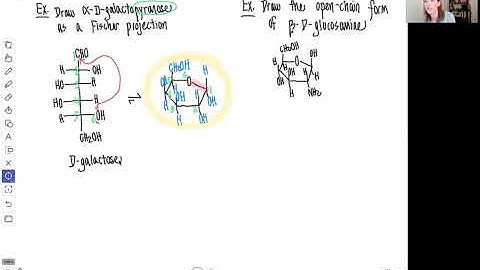 Ex. Draw α-D-galactopyranose
as a Fischer projection
CHO
H OH
HO H
HO H
H OH
CH₂OH
D-galactose
⇌
CH₂OH
O
H
OH
H
OH
OH
Ex. Draw the open-chain form
of β-D-glucosamine
CH₂OH
O
OH
H
OH
H
H
NH₂